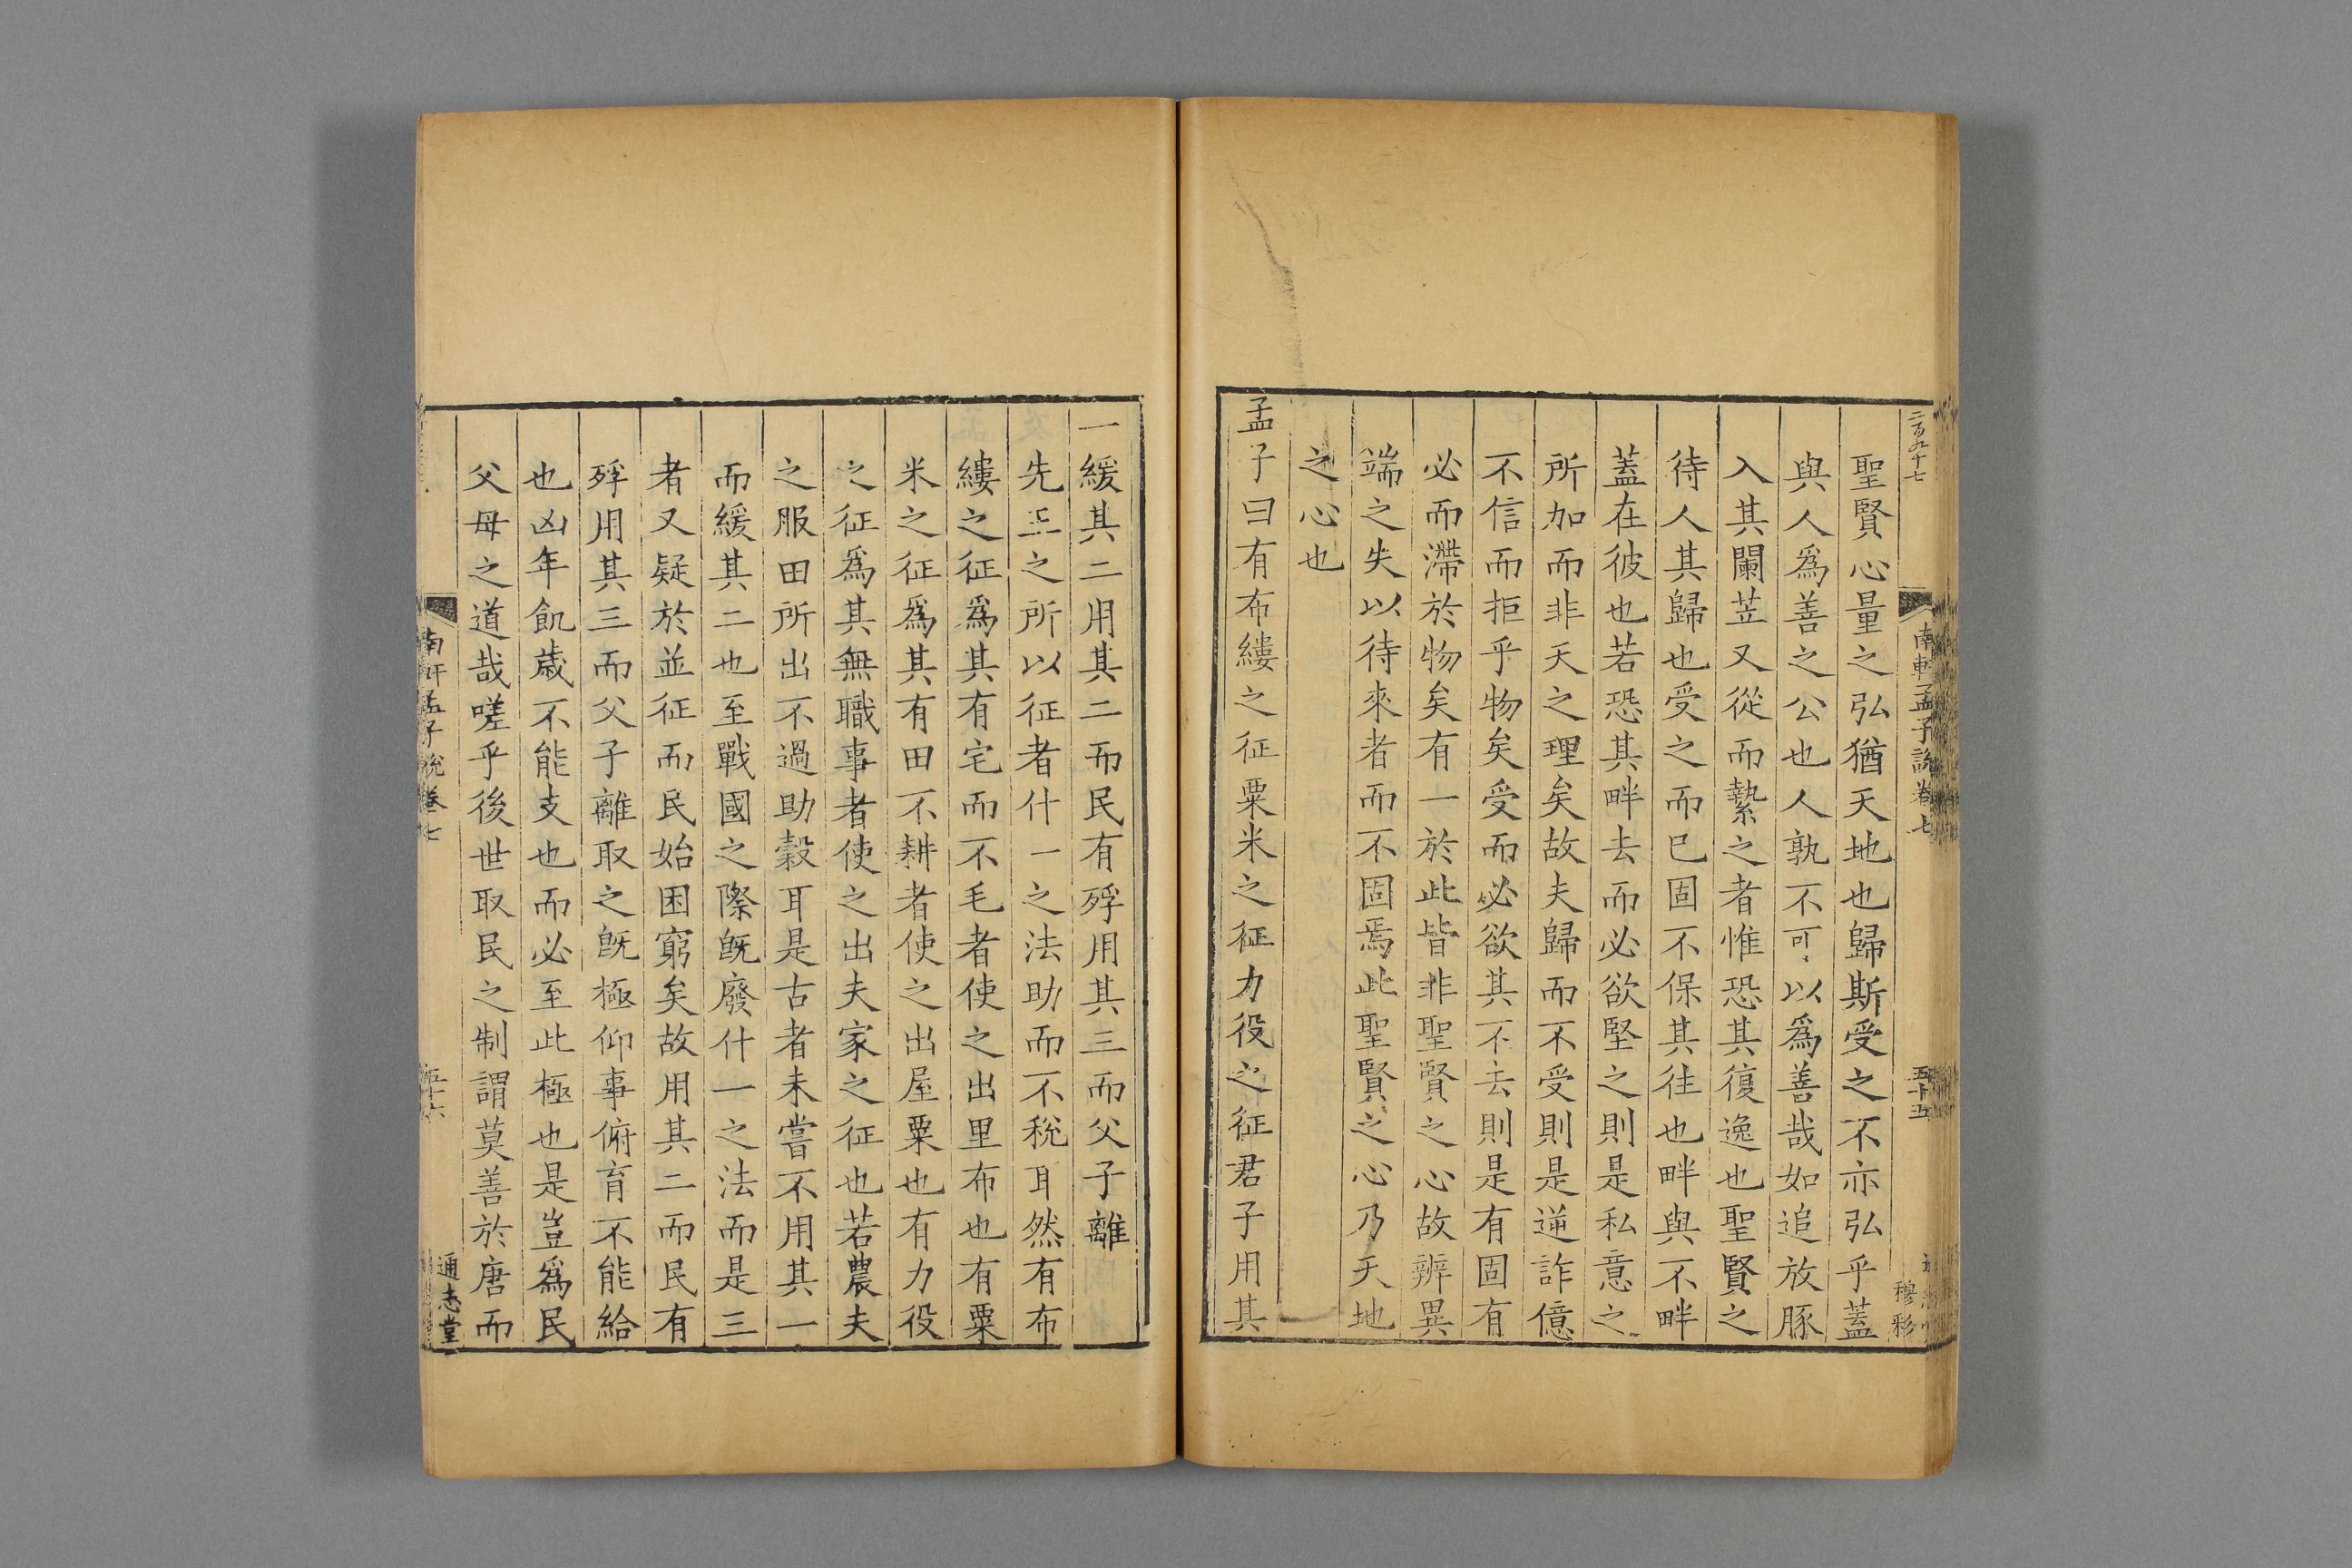 二百九十七
南軒孟子說卷七
五十五
穆彩
聖賢心量之弘猶天地也歸斯受之不亦弘乎蓋
與人爲善之公也人孰不可以爲善哉如追放豚
入其闌苙又從而縶之者惟恐其復逸也聖賢之
待人其歸也受之而已固不保其往也畔與不畔
蓋在彼也若恐其畔去而必欲堅之則是私意之
所加而非天之理矣故夫歸而不受則是逆詐億
不信而拒乎物矣受而必欲其不去則是有固有
必而滯於物矣有一於此皆非聖賢之心故辨異
端之失以待來者而不固焉此聖賢之心乃天地
之心也
孟子曰有布縷之征粟米之征力役之征君子用其
一緩其二用其二而民有殍用其三而父子離
先王之所以征者什一之法助而不稅耳然有布
縷之征爲其有宅而不毛者使之出里布也有粟
米之征爲其有田不耕者使之出屋粟也有力役
之征爲其無職事者使之出夫家之征也若農夫
之服田所出不過助穀耳是古者未嘗不用其一
而緩其二也至戰國之際旣廢什一之法而是三
者又疑於並征而民始困窮矣故用其二而民有
殍用其三而父子離取之旣極仰事俯育不能給
也凶年飢歲不能支也而必至此極也是豈爲民
父母之道哉嗟乎後世取民之制謂莫善於唐而
南軒孟子說卷七
五十六
通志堂